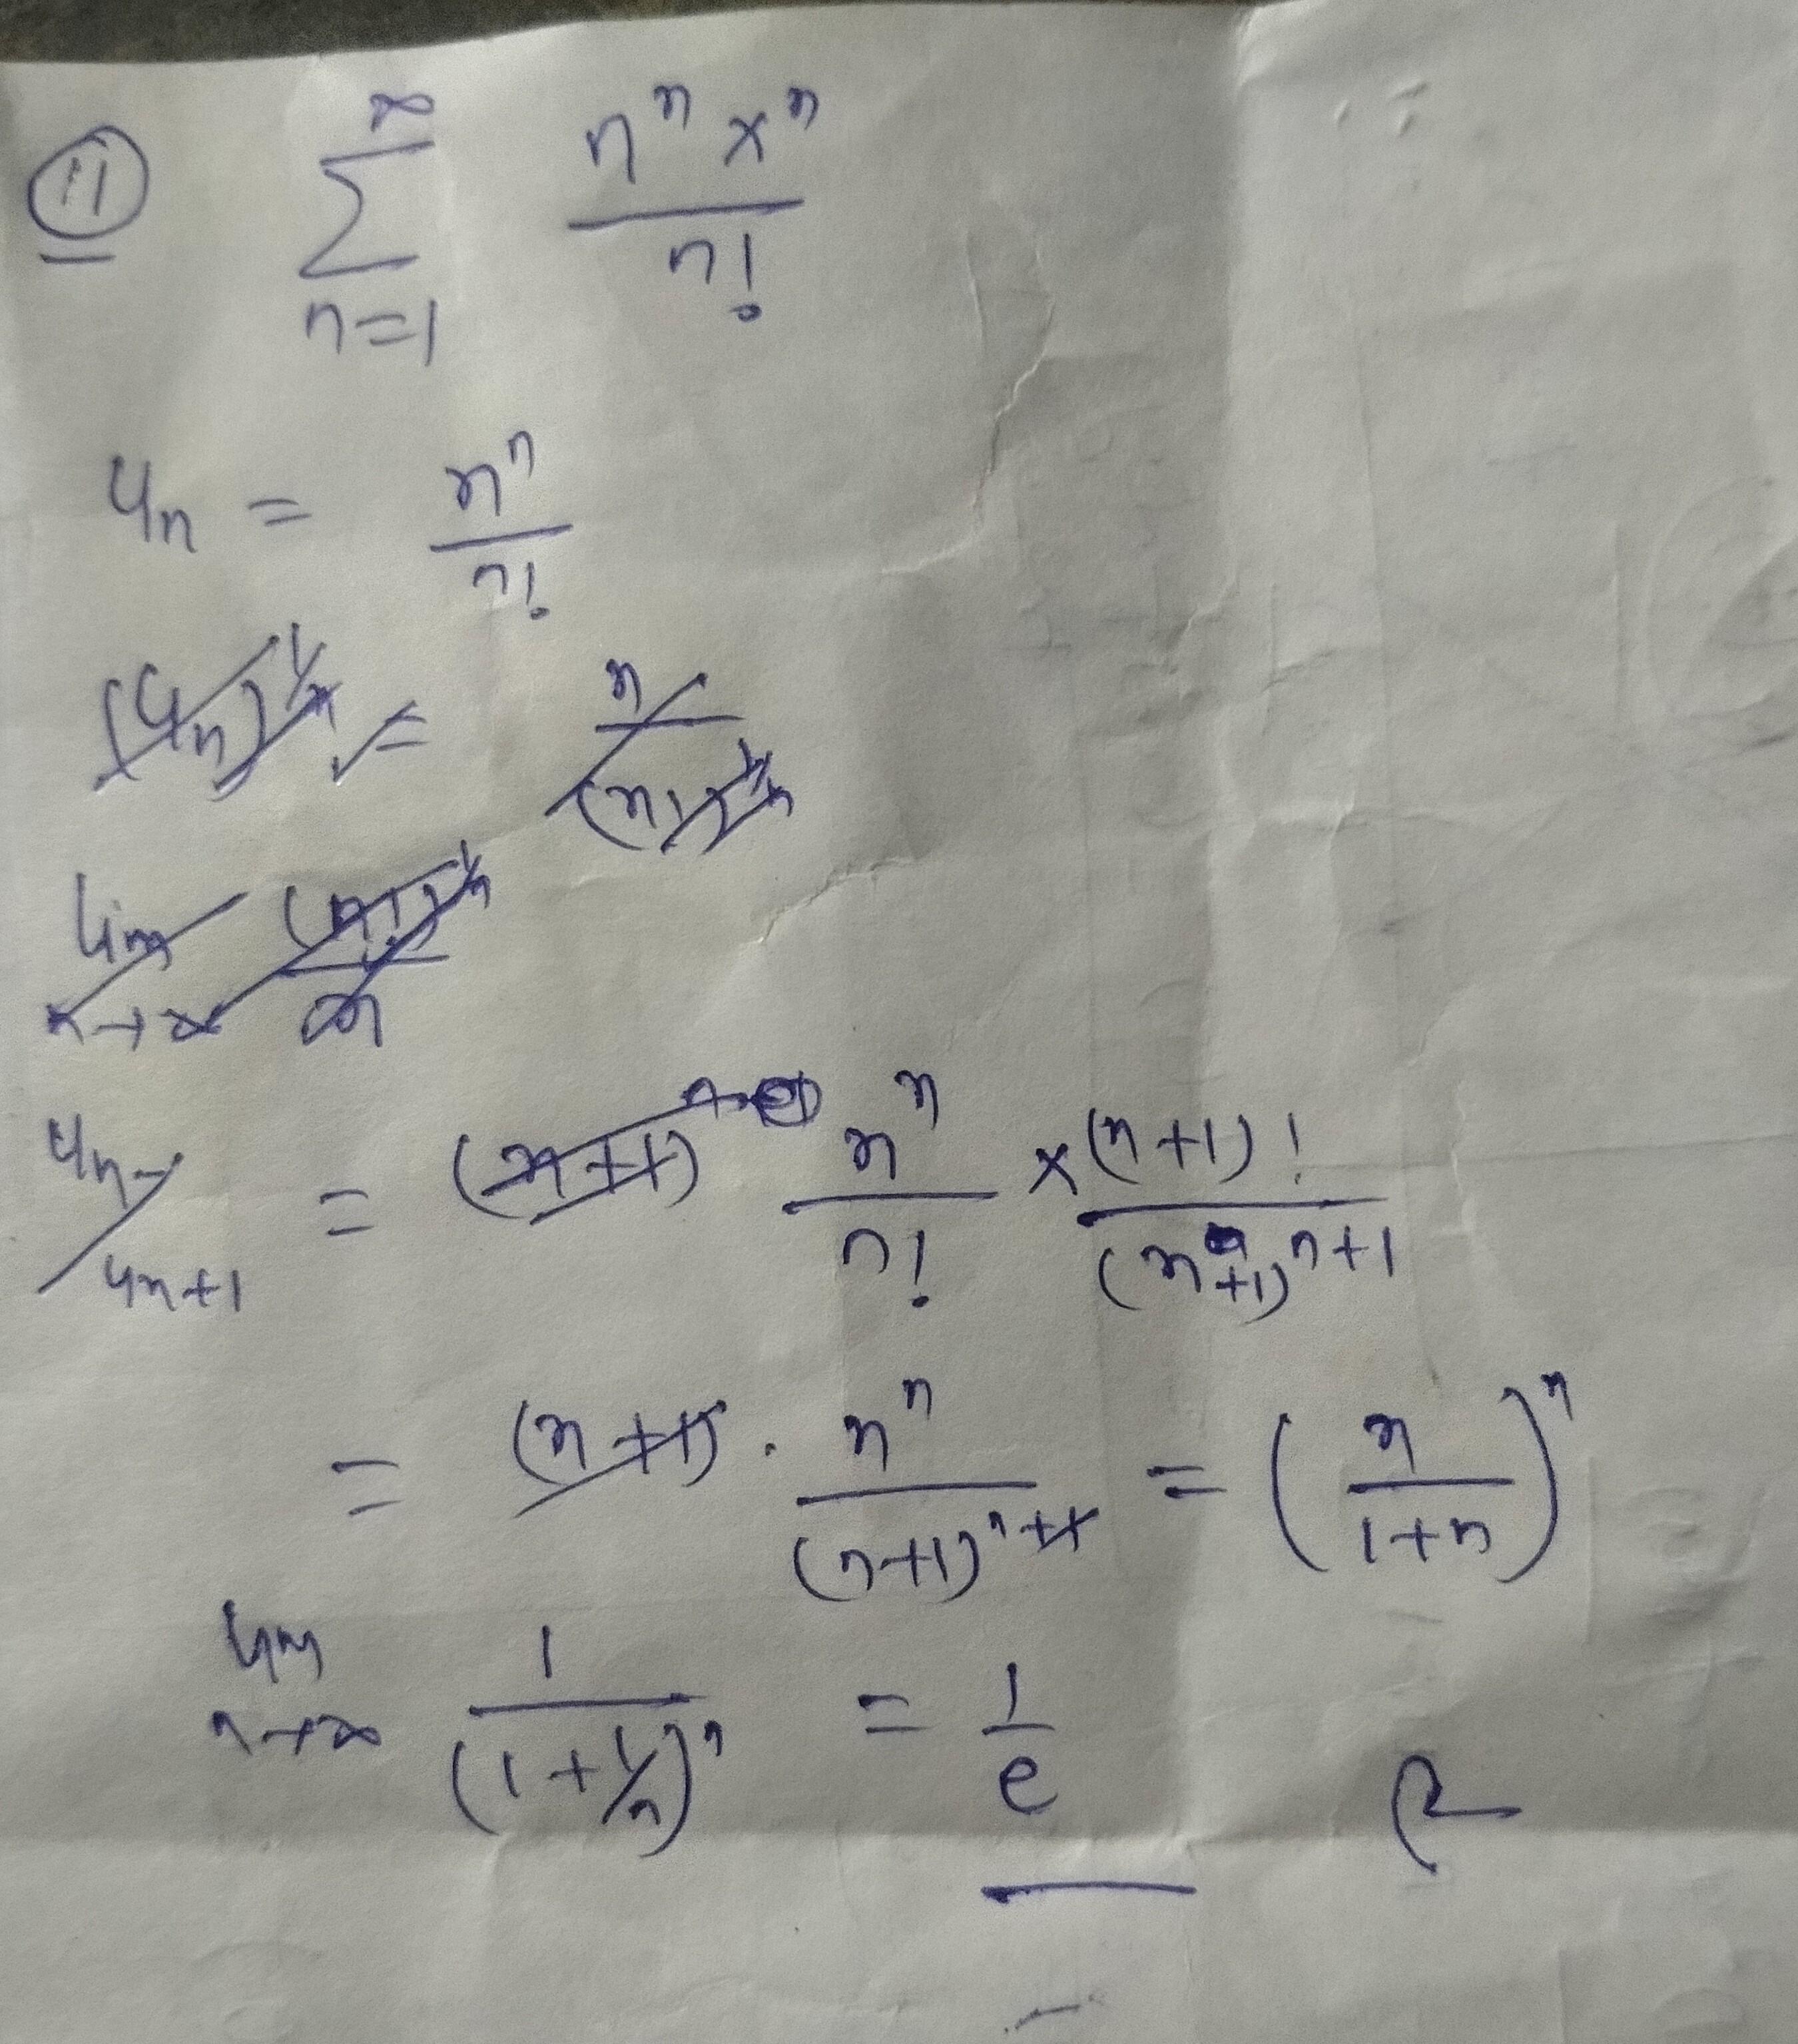 ⑪ ∑_{n=1}^{∞} \frac{n^n x^n}{n!}
u_n = \frac{n^n}{n!}
(u_n)^{1/n} = \frac{n}{(n!)^{1/n}}
lim_{n→∞} \frac{(n!)^{1/n}}{n}
u_n/u_{n+1} = (n+1) \frac{n^n}{n!} × \frac{(n+1)!}{(n+1)^{n+1}}
= (n+1) . \frac{n^n}{(n+1)^{n+1}} = (\frac{n}{1+n})^n
lim_{n→∞} \frac{1}{(1+1/n)^n} = \frac{1}{e}